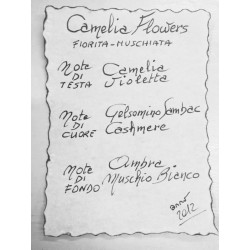 Camelia Flowers
FIORITA-MUSCHIATA
Note DI TESTA
Camelia
Violetta
Note DI CUORE
Gelsomino Sambac
Cashmere
Note DI FONDO
Ambra
Muschio Bianco
anno
2012